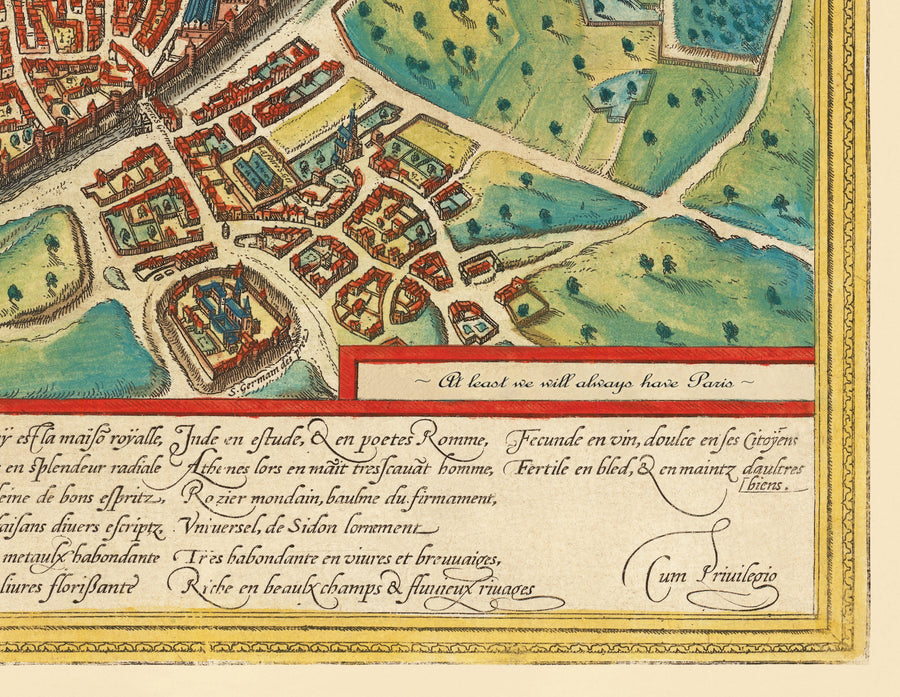 S. Germain des Prez
~ At least we will always have Paris ~
ÿ est la maisõ roÿalle,
en splendeur radiale
eine de bons espritz,
aisans diuers escriptz
metaulx habondante
liures florißante
Inde en estude, & en poetes Romme,
Athenes lors en maĩt trescauãt homme,
Rozier mondain, baulme du firmament,
Vniuersel, de Sidon lornement
Tres habondante en viures et breuuaiges,
Riche en beaulx champs & fluuieux riuages
Fecunde en vin, doulce en ses Citoÿens
Fertile en bled, & en maintz daultres
biens.
Cum Priuilegio